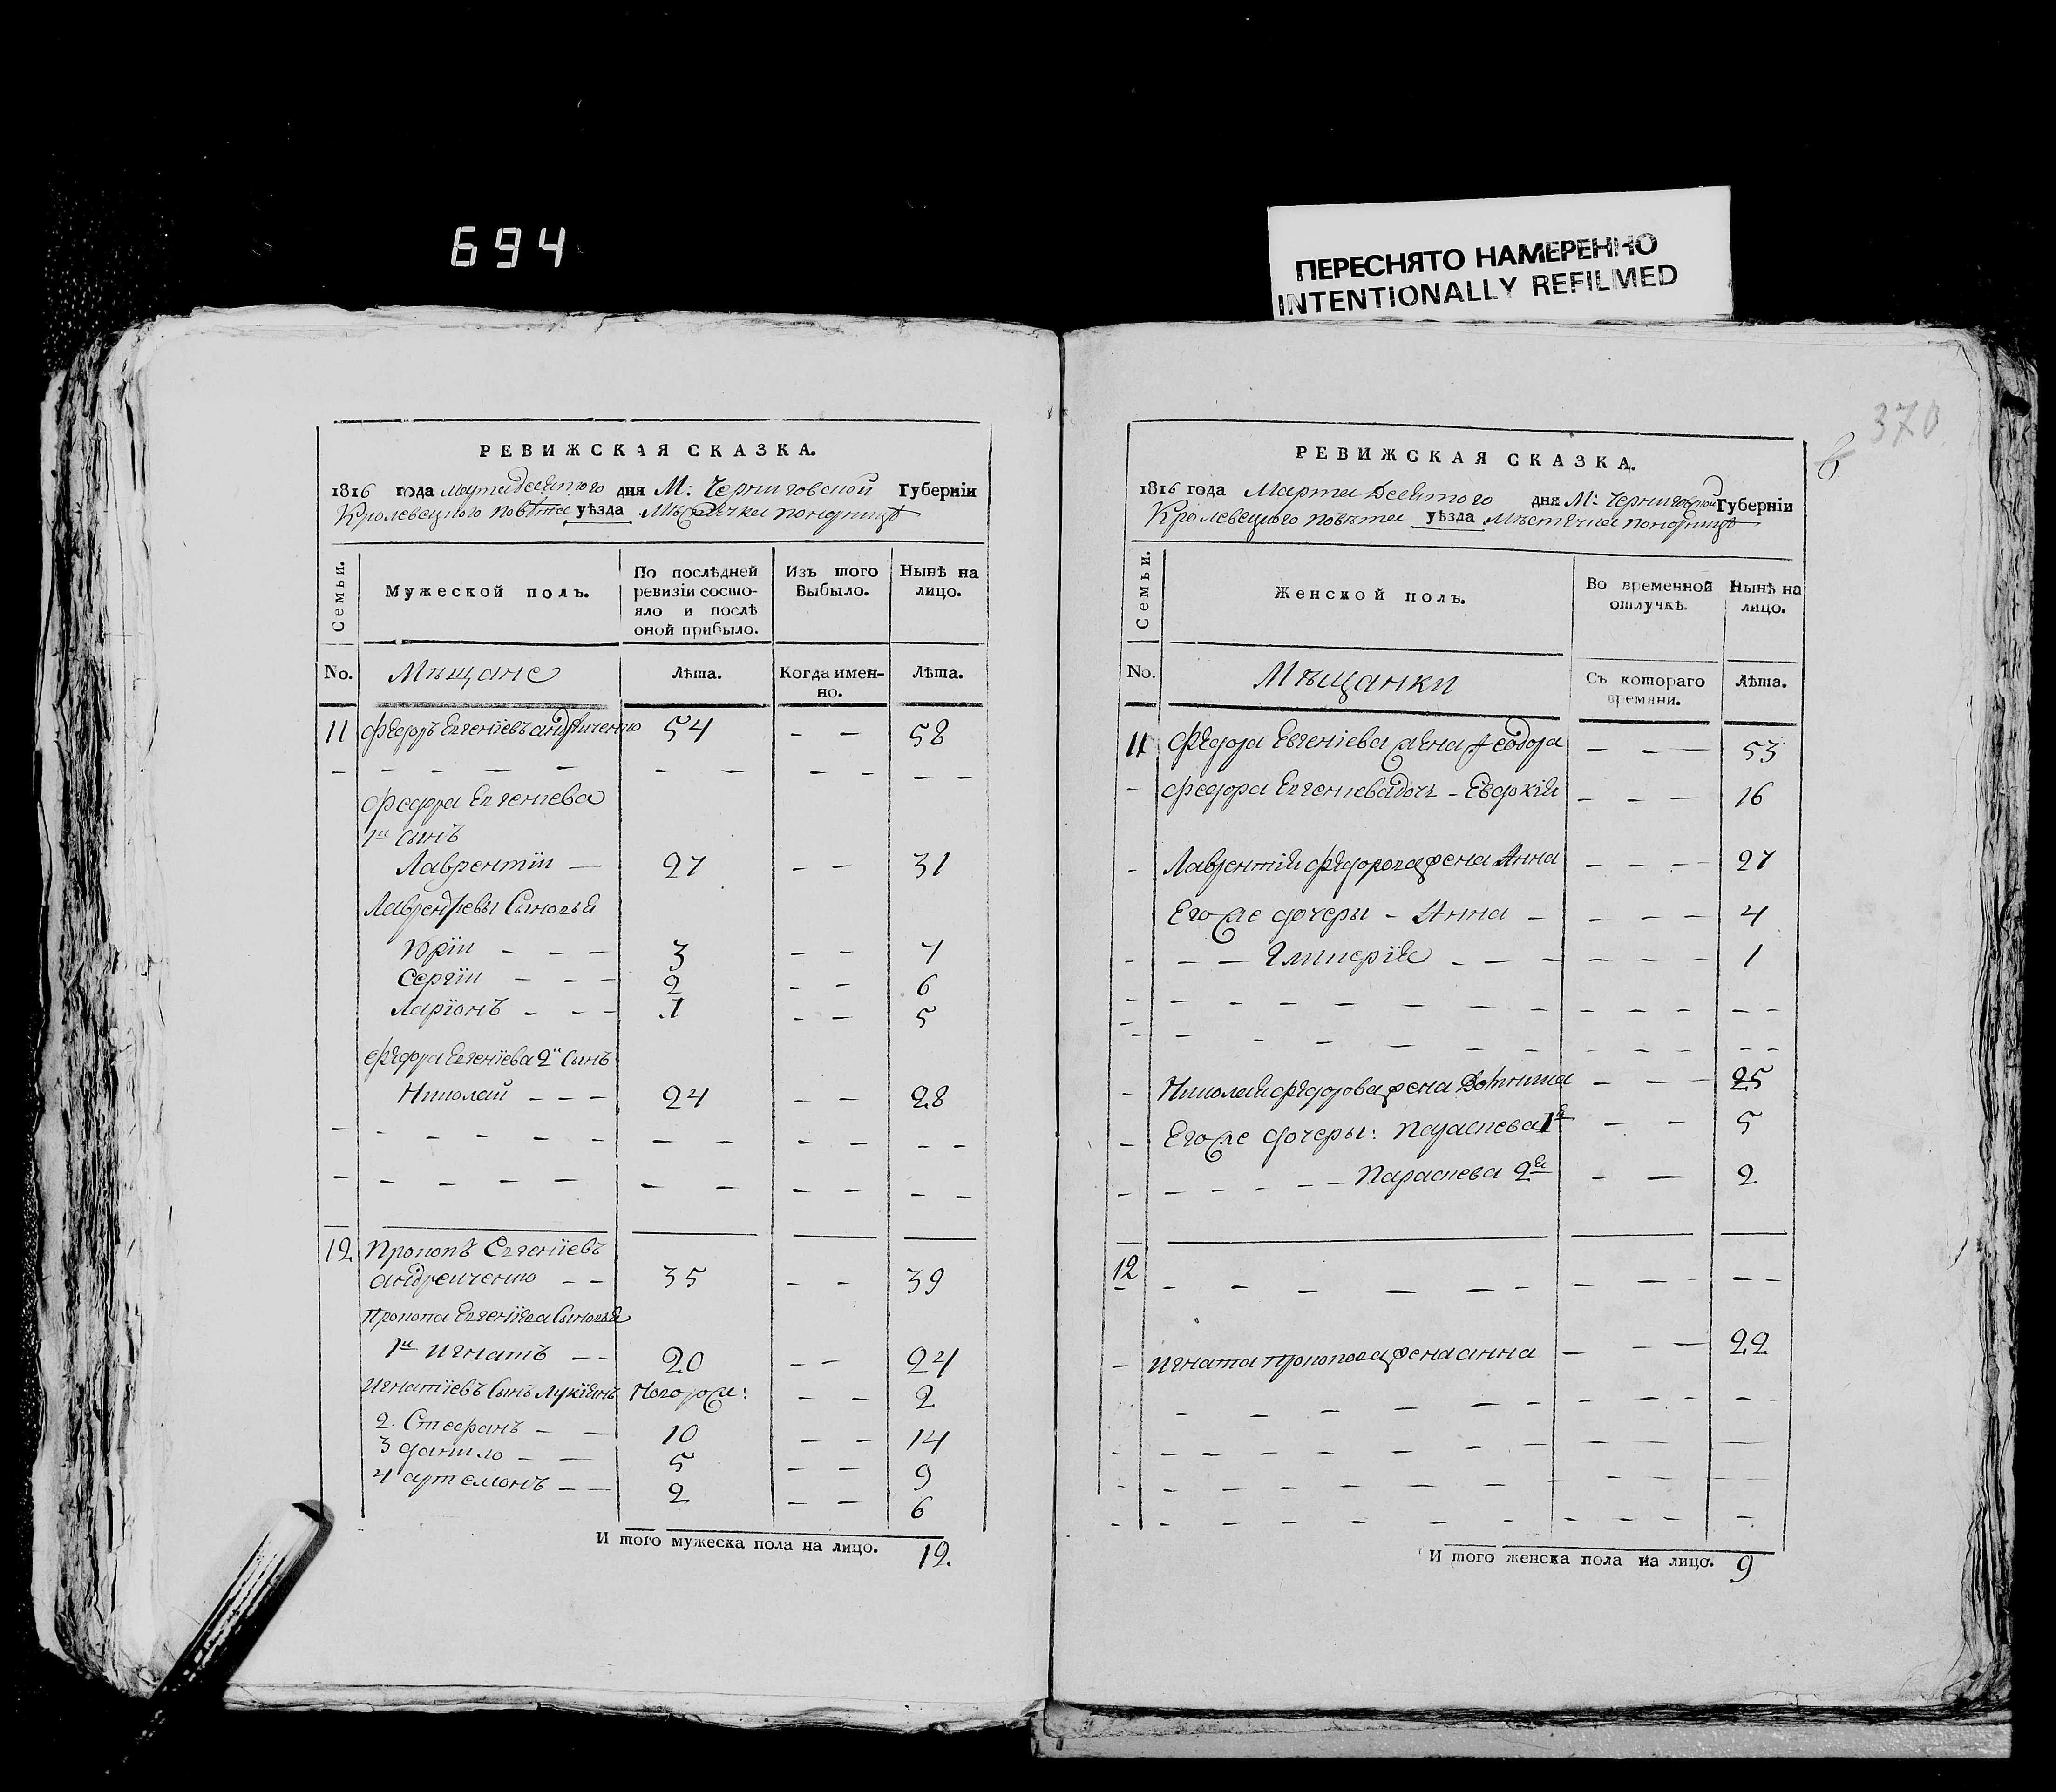 694
ПЕРЕСНЯТО НАМЕРЕННО
INTENTIONALLY REFILMED
370
РЕВИЖСКАЯ СКАЗКА.
1816 года Марта десятого дня М: Черниговской Губерніи
Кролевецкого повѣта уѣзда Мѣстечка понорницѣ
Семьи.
Мужеской полъ.
По послѣдней ревизіи состояло и послѣ оной прибыло.
Изъ того Выбыло.
Нынѣ на лицо.
No. Мѣщане Лѣта. Когда именно. Лѣта.
11 Федоръ Евгеніевъ андрѣиченко 54 – – 58
Федора Евгениева
1й сынъ
Лаврентіи — 27 – – 31
Лаврентіевы сыновья
Юріи – – – 3 – – 7
Сергіи – – – 2 – – 6
Ларіонъ – – – 1 – – 5
Федора Евгеніева 2й сынъ
Николай – – – 24 – – 28
12. Прокопъ Евгеніевъ
андреиченко – – 35 – – 39
Прокопа Евгеніева сыновья
1й Игнатъ – – 20 – – 24
Игнатіевъ сынъ Лукіянъ новорож: – – 2
2. Стефанъ – – 10 – – 14
3 данило – – 5 – – 9
4 артемонъ – – 2 – – 6
И того мужеска пола на лицо. 12.
РЕВИЖСКАЯ СКАЗКА.
1816 года Марта десятого дня М: Черниговской Губерніи
Кролевецкого повѣта уѣзда Мѣстечка понорницѣ
Семьи.
Женской полъ.
Во временной отлучкѣ.
Нынѣ на лицо.
No. Мѣщанки Съ котораго времяни. Лѣта.
11 Федора Евгеніева жена Феодора – – – 53
Федора Евгениева дочь – Евдокія – – – 16
Лаврентія Федорова жена Анна – – – 27
Его же дочеры – Анна – – – – 4
– – Гликерія – – – – – – 1
Николая Федорова жена – – – 25
Его же дочеры: Параскева 1я – – 5
Параскева 2я – – 2
12
Игната прокопова жена анна – – – 22
И того женска пола на лицо. 9